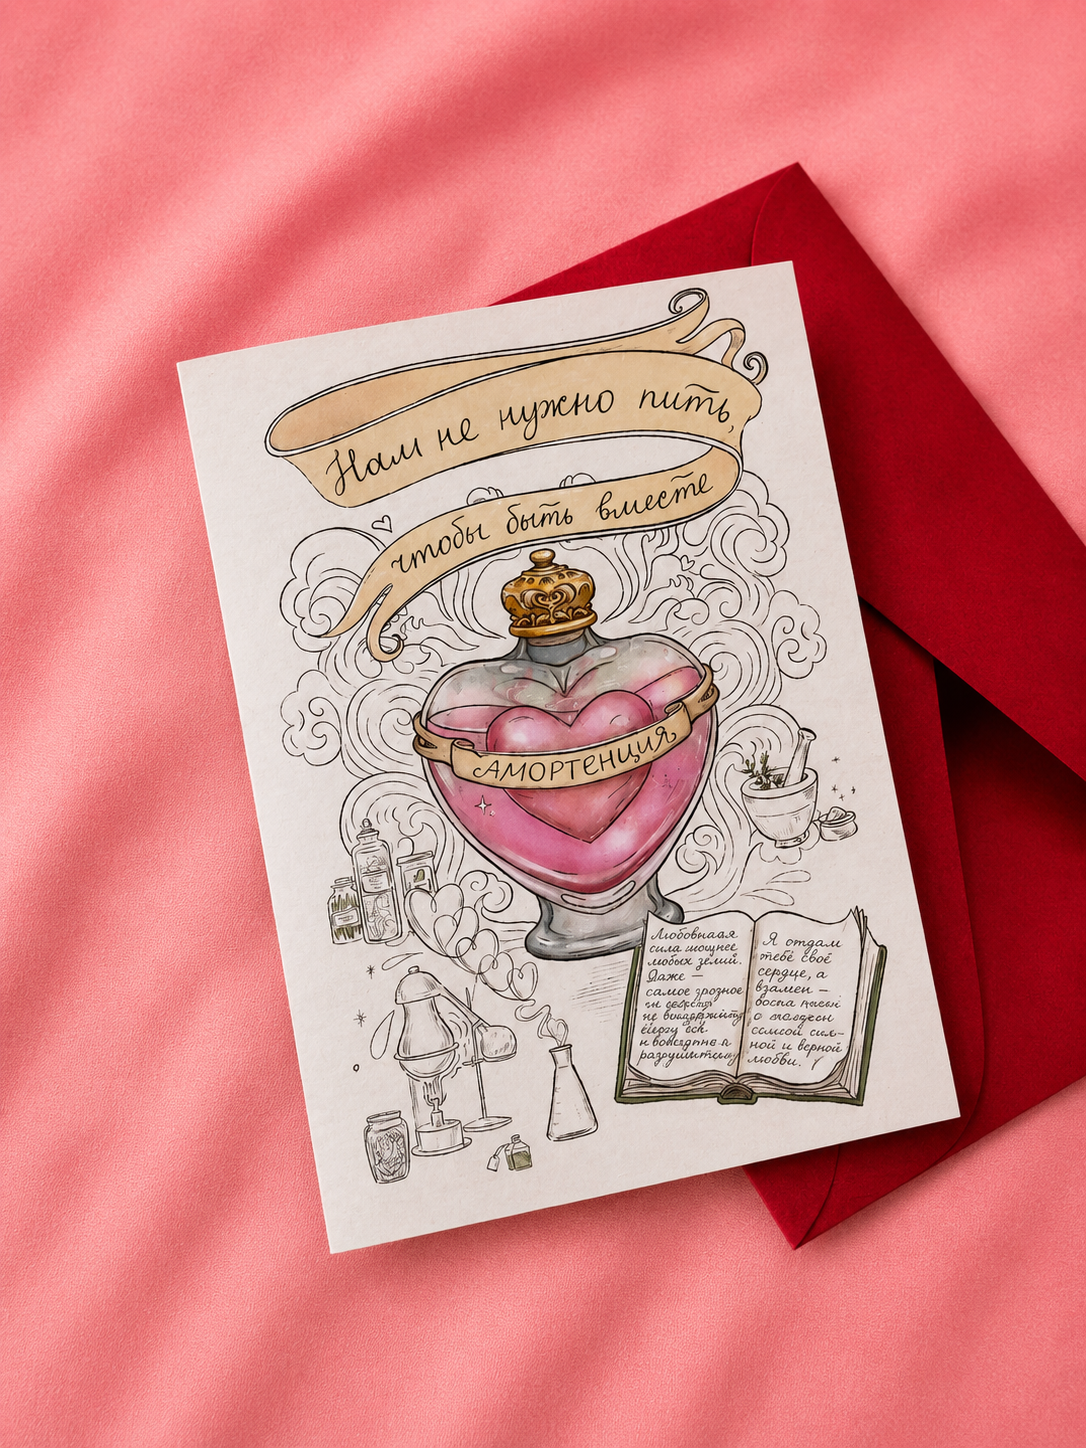 Нам не нужно пить,
чтобы быть вместе
АМОРТЕНЦИЯ
Любовная
сила мощнее
любых зелий.
Даже —
самое грозное
не
разрушить
Я отдам
тебе своё
сердце, а
взамен —
о
самой силь-
ной и верной
любви.